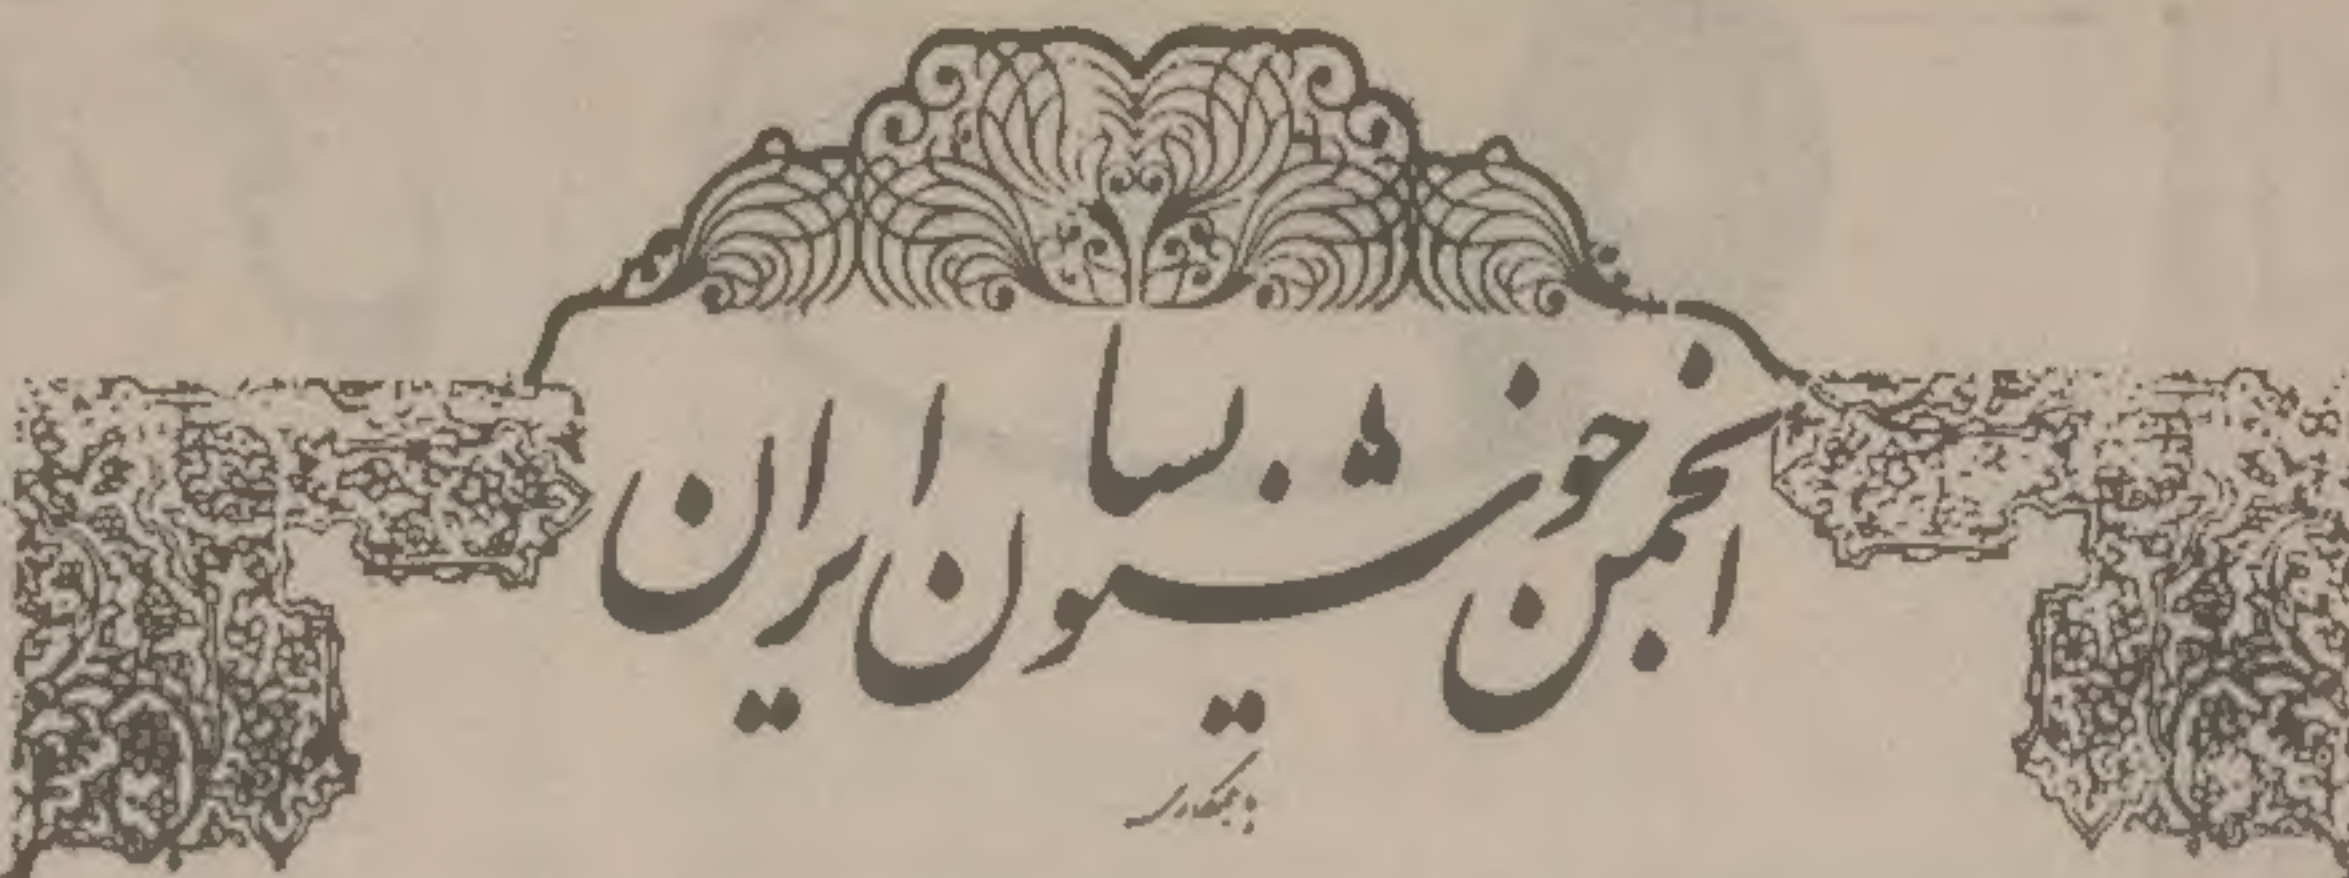 انجمن خوشنویسان ایران
با همکاری